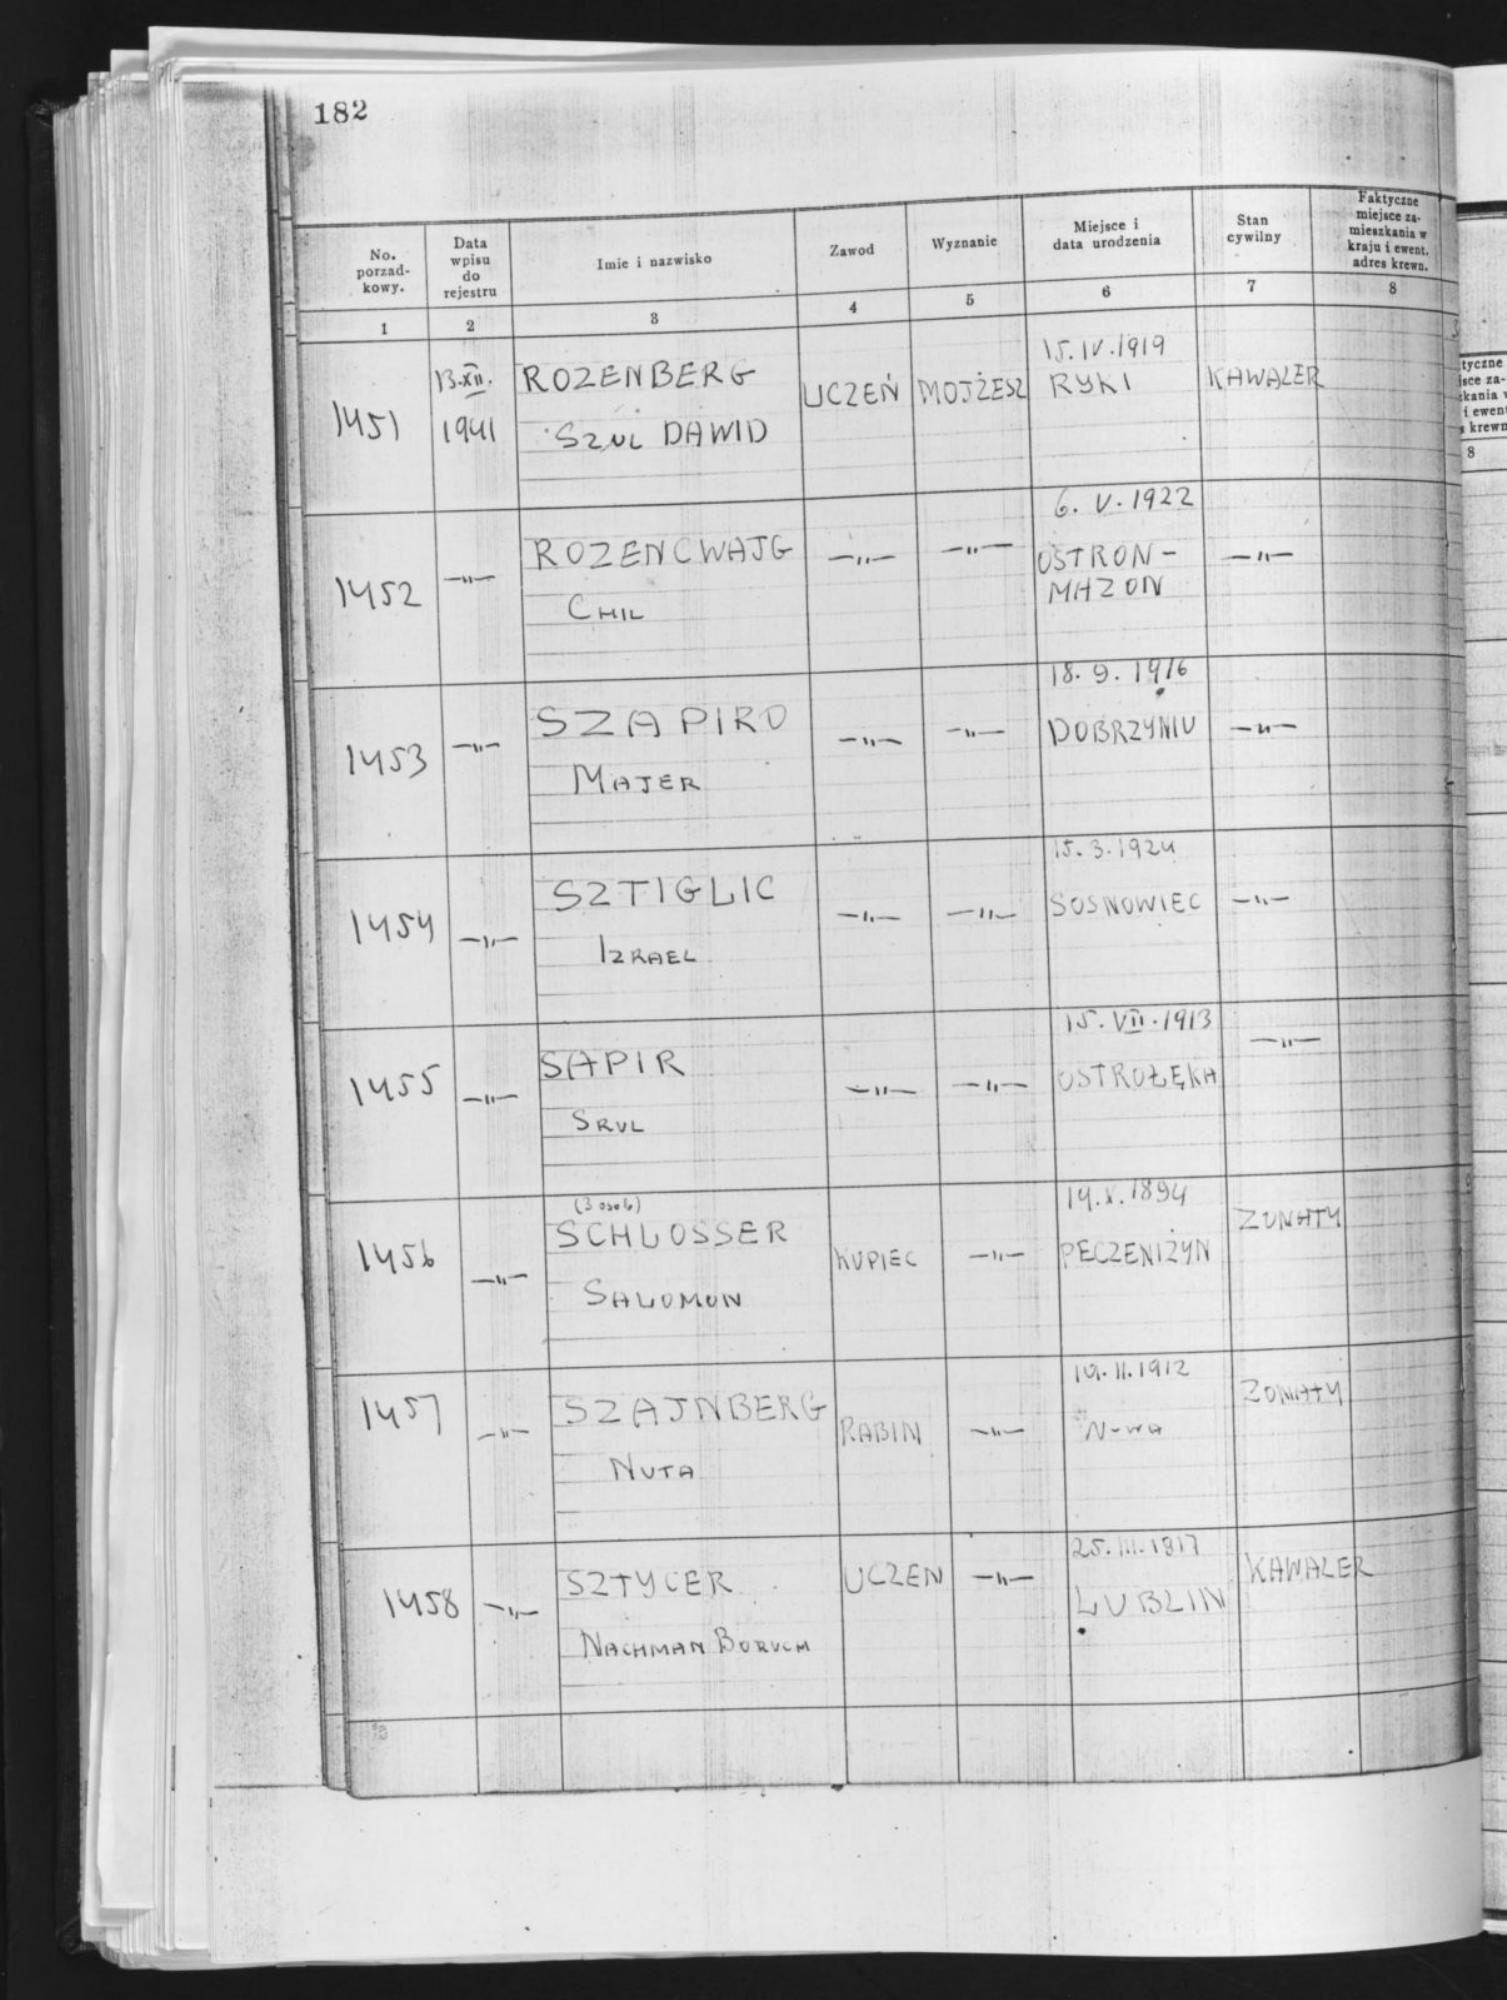 182
No. porzad- kowy.
Data wpisu do rejestru
Imie i nazwisko
Zawod
Wyznanie
Miejsce i data urodzenia
Stan cywilny
Faktyczne miejsce za- mieszkania w kraju i ewent. adres krewn.
1 2 3 4 5 6 7 8
1451 13.XII. 1941 ROZENBERG UCZEŃ MOJŻESZ 15.IV.1919 RYKI KAWALER
SZUL DAWID
1452 —"— ROZENCWAJG —"— —"— 6. V. 1922 OSTRON- MAZON —"—
CHIL
1453 —"— SZAPIRO —"— —"— 18. 9. 1916 DOBRZYNIU —"—
MAJER
1454 —"— SZTIGLIC —"— —"— 15. 3. 1924 SOSNOWIEC —"—
IZRAEL
1455 —"— SAPIR —"— —"— 15. VII. 1913 OSTROŁĘKA —"—
SRUL
1456 —"— (3 osob) SCHLOSSER KUPIEC —"— 14.X.1894 PECZENIŻYN ZONATY
SALOMON
1457 —"— SZAJNBERG RABIN —"— 19.11.1912 ZONATY
NUTA
1458 —"— SZTYCER UCZEN —"— 25.III.1917 LUBLIN KAWALER
NACHMAN BORUCH
tyczne
jsce za-
zkania w
i ewent
s krewn
8